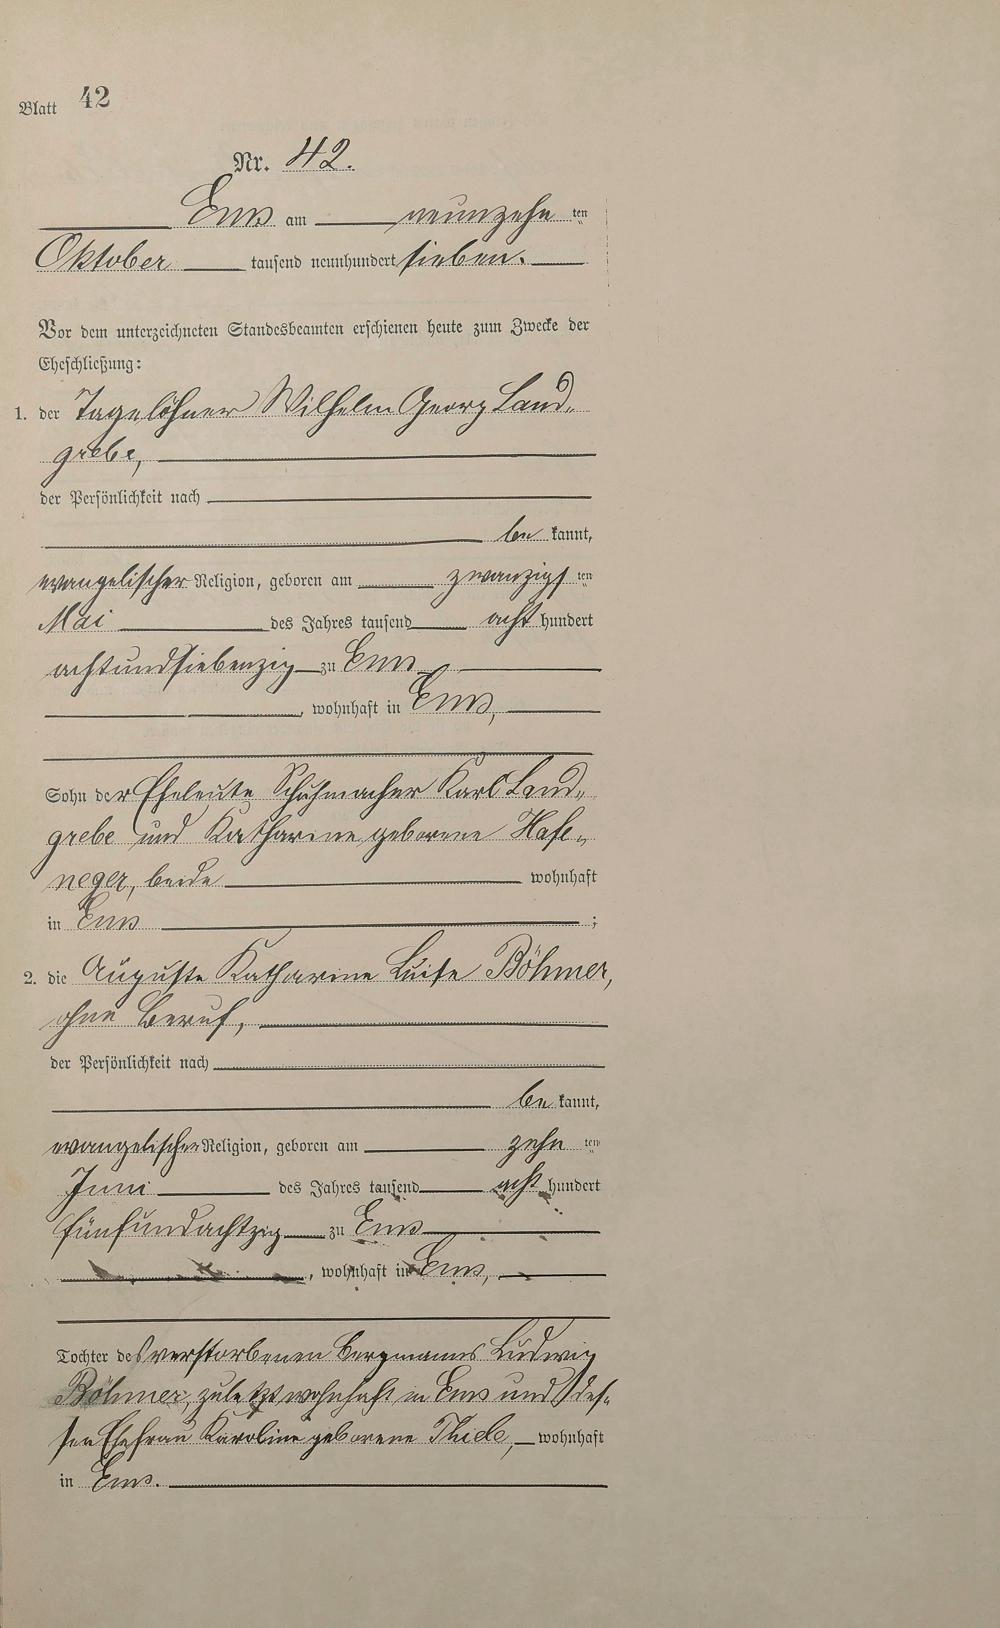 Blatt 42
Nr. 42.
Ems am neunzehn ten
Oktober tausend neunhundert sieben.
Vor dem unterzeichneten Standesbeamten erschienen heute zum Zwecke der
Eheschließung:
1. der Tagelöhner Wilhelm Georg Land-
grebe,
der Persönlichkeit nach
be kannt,
evangelischer Religion, geboren am zwanzigs ten
Mai des Jahres tausend acht hundert
achtundsiebenzig zu Ems
, wohnhaft in Ems,
Sohn der Eheleute Schuhmacher Karl Land-
grebe und Katharine geborene Hafe-
neger, beide wohnhaft
in Ems ;
2. die Auguste Katharine Luise Böhmer,
ohne Beruf,
der Persönlichkeit nach
be kannt,
evangelischer Religion, geboren am zehn ten
Juni des Jahres tausend acht hundert
fünfundachtzig zu Ems
, wohnhaft in Ems,
Tochter des verstorbenen Bergmanns Ludwig
Böhmer, zuletzt wohnhaft in Ems und des-
sen Ehefrau Karoline geborene Thiele, wohnhaft
in Ems.